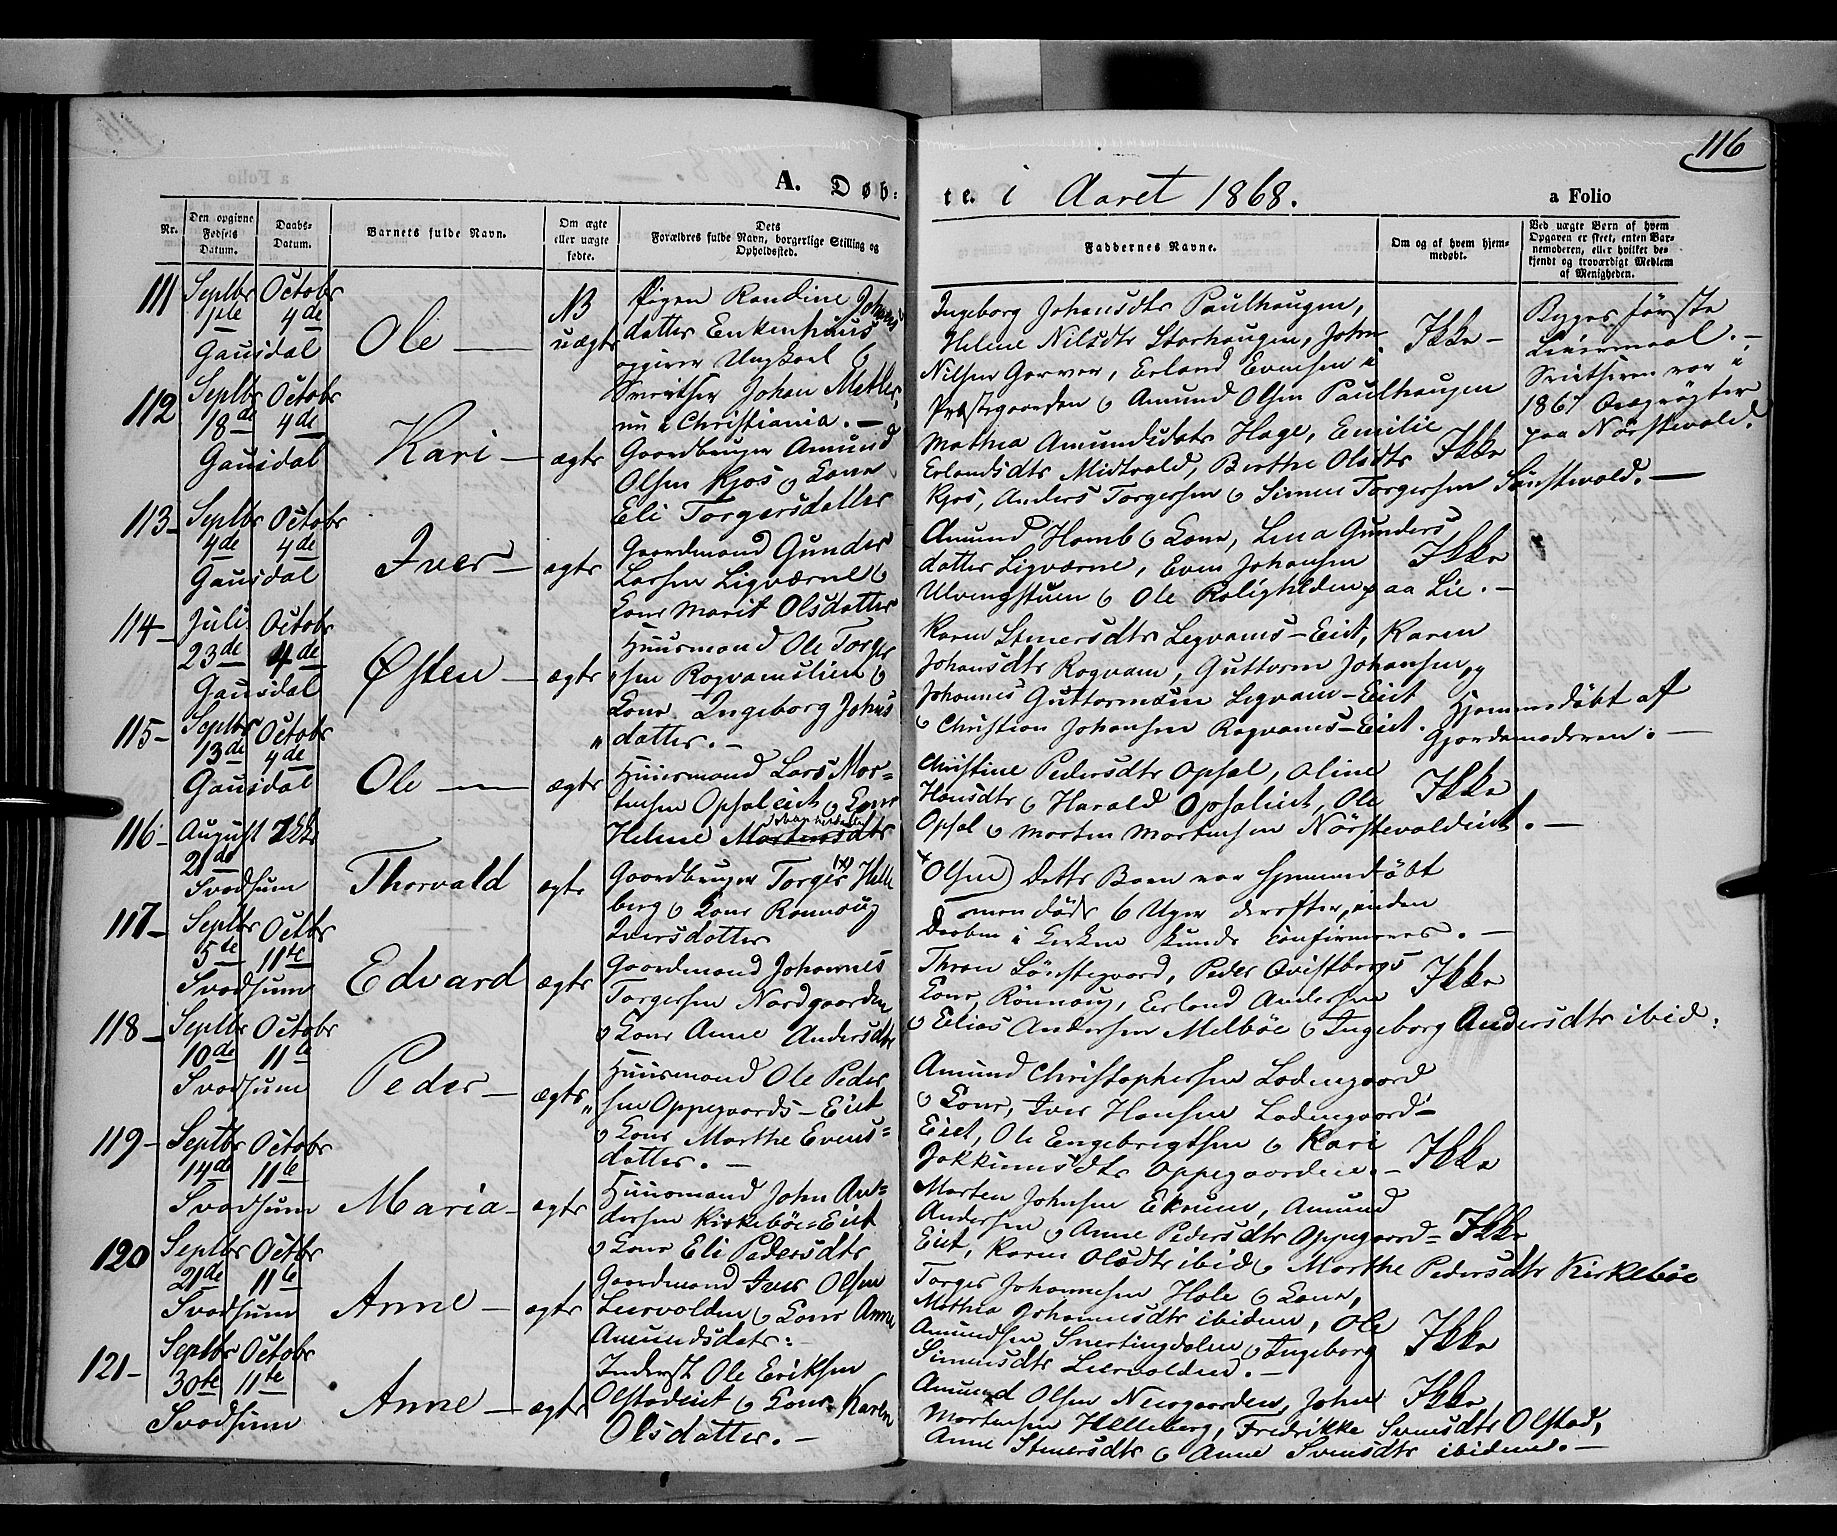 116
A. Døb:
te. i Aaret 1868.
a Folio
Nr.
Den opgivne Fødsels Datum.
Daabs-Datum.
Barnets fulde Navn.
Om ægte eller uægte fødte.
Dets Forældres fulde Navn, borgerlige Stilling og Opholdssted.
Faddernes Navne.
Om og af hvem hjemmedøbt.
Ved uægte Børn af hvem Opgaven er skeet, enten Barnemoderen, eller hvilket bekjendt og troværdigt Medlem af Menigheden.
111
Septbr 1ste
Gausdal
Octobr 4de
Ole
NB uægte
Pigen Randine Johans
datter Enkenhuus
opgiver Ungkarl &
Johan Metler,
nu i Christiania. —
Ingeborg Johansdtr Paulhaugen,
Helene Nilsdtr Storhaugen, John
Nilsen Garver, Erland Evensen i
Præstegaarden & Amund Olsen Paulhaugen
Ikke —
Begges første
Leiermaal. —
var i
1867
paa Nørstevold.
112
Septbr 18de
Gausdal
Octobr 4de
Kari —
ægte
Gaardbruger Amund
Olsen Kjos & Kone
Eli Torgersdatter
Mathea Amundsdatr Hage, Emilie
Erlandsdtr Midtvold, Berthe Olsdtr
Kjos, Anders Torgersen & Simen Torgersen Sønstevold. —
Ikke
113 —
Septbr 4de
Gausdal
Octobr 4de
Iver —
ægte
Gaardmand Gunder
Larsen Ligværne &
Kone Marit Olsdatter
Amund Homb & Kone, Lena Gunders
datter Ligværne, Even Johansen
Ulvengstuen & Ole Roligheden paa Lie. —
Ikke
114 —
Juli 23de
Gausdal
Octobr 4de
Østen —
ægte
Huusmand Ole Torger
sen Rogvamslien &
Kone Ingeborg Johns
datter. —
Karen Stenersdtr Legvams-Eiet, Karen
Johansdtr Rogvam, Guttorm Johansen og
Johannes Guttormsen Legvam-Eiet
& Christian Johansen Rogvams-Eiet.
Hjemmedøbt af
Gjordemoderen. —
115 —
Septbr 13de
Gausdal
Octobr 4de
Ole —
ægte
Huusmand Lars Mor-
tensen Opsaleiet & Kone
Helene Mortensdtr
Christine Pedersdtr Opsal, Oline
Hansdtr & Harald Opsaleiet, Ole
Opsal & Morten Mortensen Nørstevoldeiet. —
Ikke
116
August 21de
Svadsum
Ikke
Thorvald
ægte
Gaardbruger Torger (x) Helle
berg & Kone Rønnoug
Iversdatter
x Olsen) Dette Barn var hjemmedøbt
men døde 6 Uger derefter, inden
Daaben i Kirken kunde confirmeres. —
117 —
Septbr 5te
Svadsum
Octbr 11te
Edvard
ægte
Gaardmand Johannes
Torgersen Nordgaarden
& Kone Anne Andersdtr
Thron Sønstegaard, Peder Qvistbergs
Kone, Rønnoug, Erland Andersen
& Elias Andersen Melbøe & Ingeborg Andersdtr ibid:
Ikke
118 —
Septbr 10de
Svadsum
Octobr 11te
Peder —
ægte
Huusmand Ole Peder
sen Oppegaards-Eiet
& Kone Marthe Evens-
datter. —
Amund Christophersen Lodengaard
& Kone, Iver Hansen Lodengaard-
Eiet, Ole Engebrigtsen & Kari
Jokkumsdtr Oppegaarden. —
Ikke
119 —
Septbr 14de
Svadsum
Octobr 11te
Maria —
ægte
Huusmand John An-
dersen Kirkebøe-Eiet
& Kone Eli Pedersdtr
Morten Johnsen Ekrene, Amund
Andersen & Anne Pedersdtr Oppegaard-
Eiet, Karen Olsdtr ibid & Marthe Pedersdtr Kirkebøe
Ikke
120
Septbr 21de
Svadsum
Octbr 11te
Anne —
ægte
Gaardmand Iver Olsen
Leervolden & Kone Anne
Amundsdatr:
Torger Johannesen Hole & Kone,
Mathea Johannesdtr ibidem, Ole
Amundsen Snertingdalen & Ingeborg
Simensdtr Leervolden. —
Ikke
121 —
Septbr 30te
Svadsum
Octobr 11te
Anne —
ægte
Inderst Ole Eriksen
Olstadeiet & Kone Karen
Olsdatter. —
Amund Olsen Neergaarden, John
Mortensen Helleberg, Fredrikke Svensdtr Olstad,
Anne Stenersdtr & Anne Svensdtr ibidem. —
Ikke